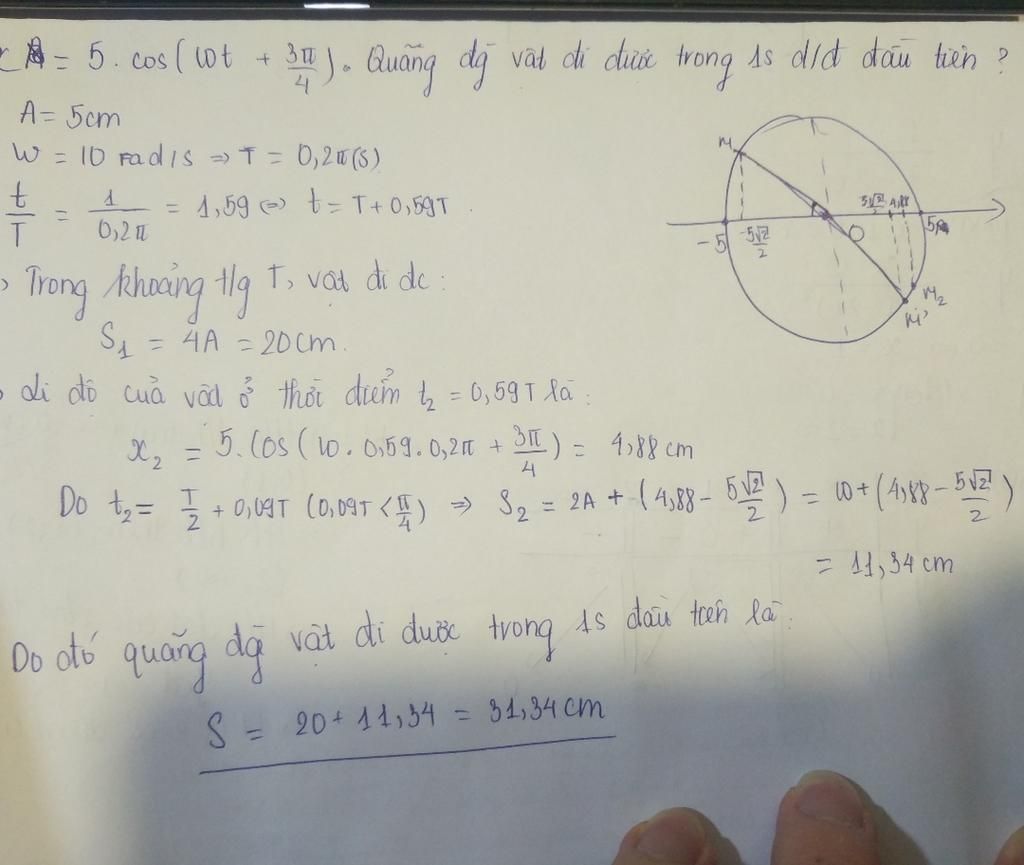 x = 5. cos(10t + 3π/4). Quãng đg vật đi được trong 1s d/đ đầu tiên ?
A = 5cm
W = 10 rad/s ⇒ T = 0,2π(s)
t/T = 1/0,2π = 1,59 ⇔ t = T + 0,59T
Trong khoảng t/g T, vật đi dc :
S₁ = 4A = 20cm.
li độ của vật ở thời điểm t₂ = 0,59T là :
x₂ = 5. cos(10. 0,59. 0,2π + 3π/4) = 4,88 cm
Do t₂ = T/2 + 0,09T (0,09T < π/4) ⇒ S₂ = 2A + (4,88 - 5√2/2) = 10 + (4,88 - 5√2/2)
= 11,34 cm
Do đó quãng đg vật đi được trong 1s đầu tiên là :
S = 20 + 11,34 = 31,34 cm
M
-5
-5√2/2
O
5√2/2
4,88
5
M₂
M'